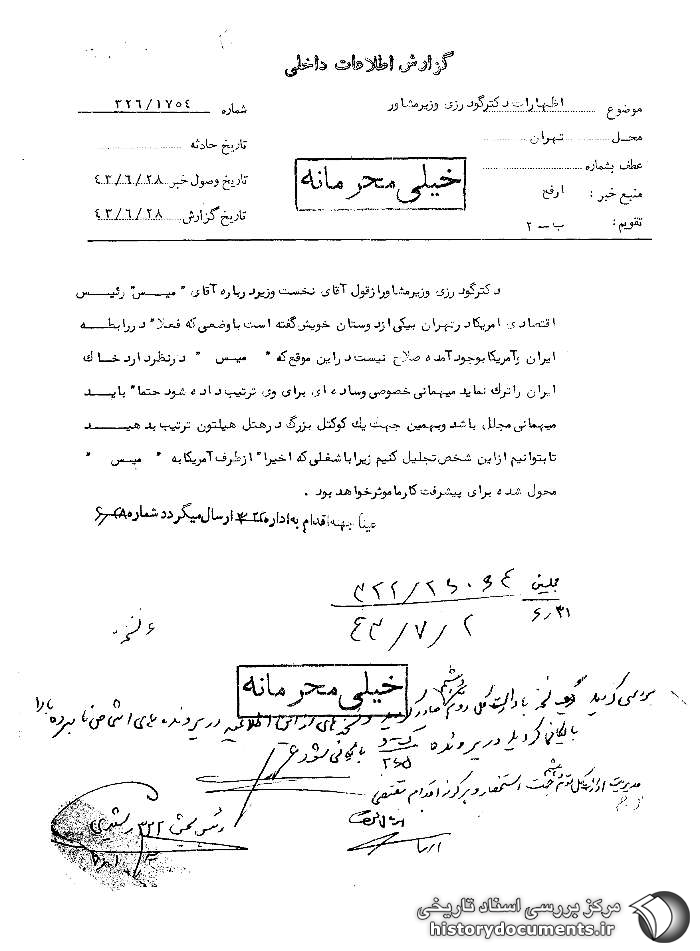 گزارش اطلاعات داخلی
موضوع اظهارات دکترگودرزی وزیرمشاور
شماره ۳۲۶/۱۷۵۴
محل تهران
تاریخ حادثه
عطف بشماره
تاریخ وصول خبر ۴۳/۶/۲۸
منبع خبر : ارفع
تاریخ گزارش ۴۳/۶/۲۸
تقویم: ب - ۲
خیلی محرمانه
دکترگودرزی وزیرمشاورازقول آقای نخست وزیردرباره آقای " میس" رئیس
اقتصادی امریکادرتهران بیکی ازدوستان خویش گفته است باوضعی که فعلا" دررابطه
ایران وآمریکابوجودآمده صلاح نیست دراین موقع که " میس " درنظردارد خاک
ایران راترک نماید میهمانی خصوصی وساده ای برای وی ترتیب داده شود حتما" باید
میهمانی مجلل باشد وبهمین جهت یک کوکتل بزرگ درهتل هیلتون ترتیب بدهید
تابتوانیم ازاین شخص تجلیل کنیم زیراباشغلی که اخیرا" ازطرف آمریکابه " میس "
محول شده برای پیشرفت کارماموثرخواهد بود .
عیناً جهت اقدام به اداره ارسال میگردد شماره
۳۲۲/۲۵۰۶۴
۶/۳۱
۴۳/۷/۲
خیلی محرمانه
بررسی گردید
بایگانی گردید در پرونده بایگانی شود
رئیس بخش ۳۲۲
مرکز بررسی اسناد تاریخی
historydocuments.ir